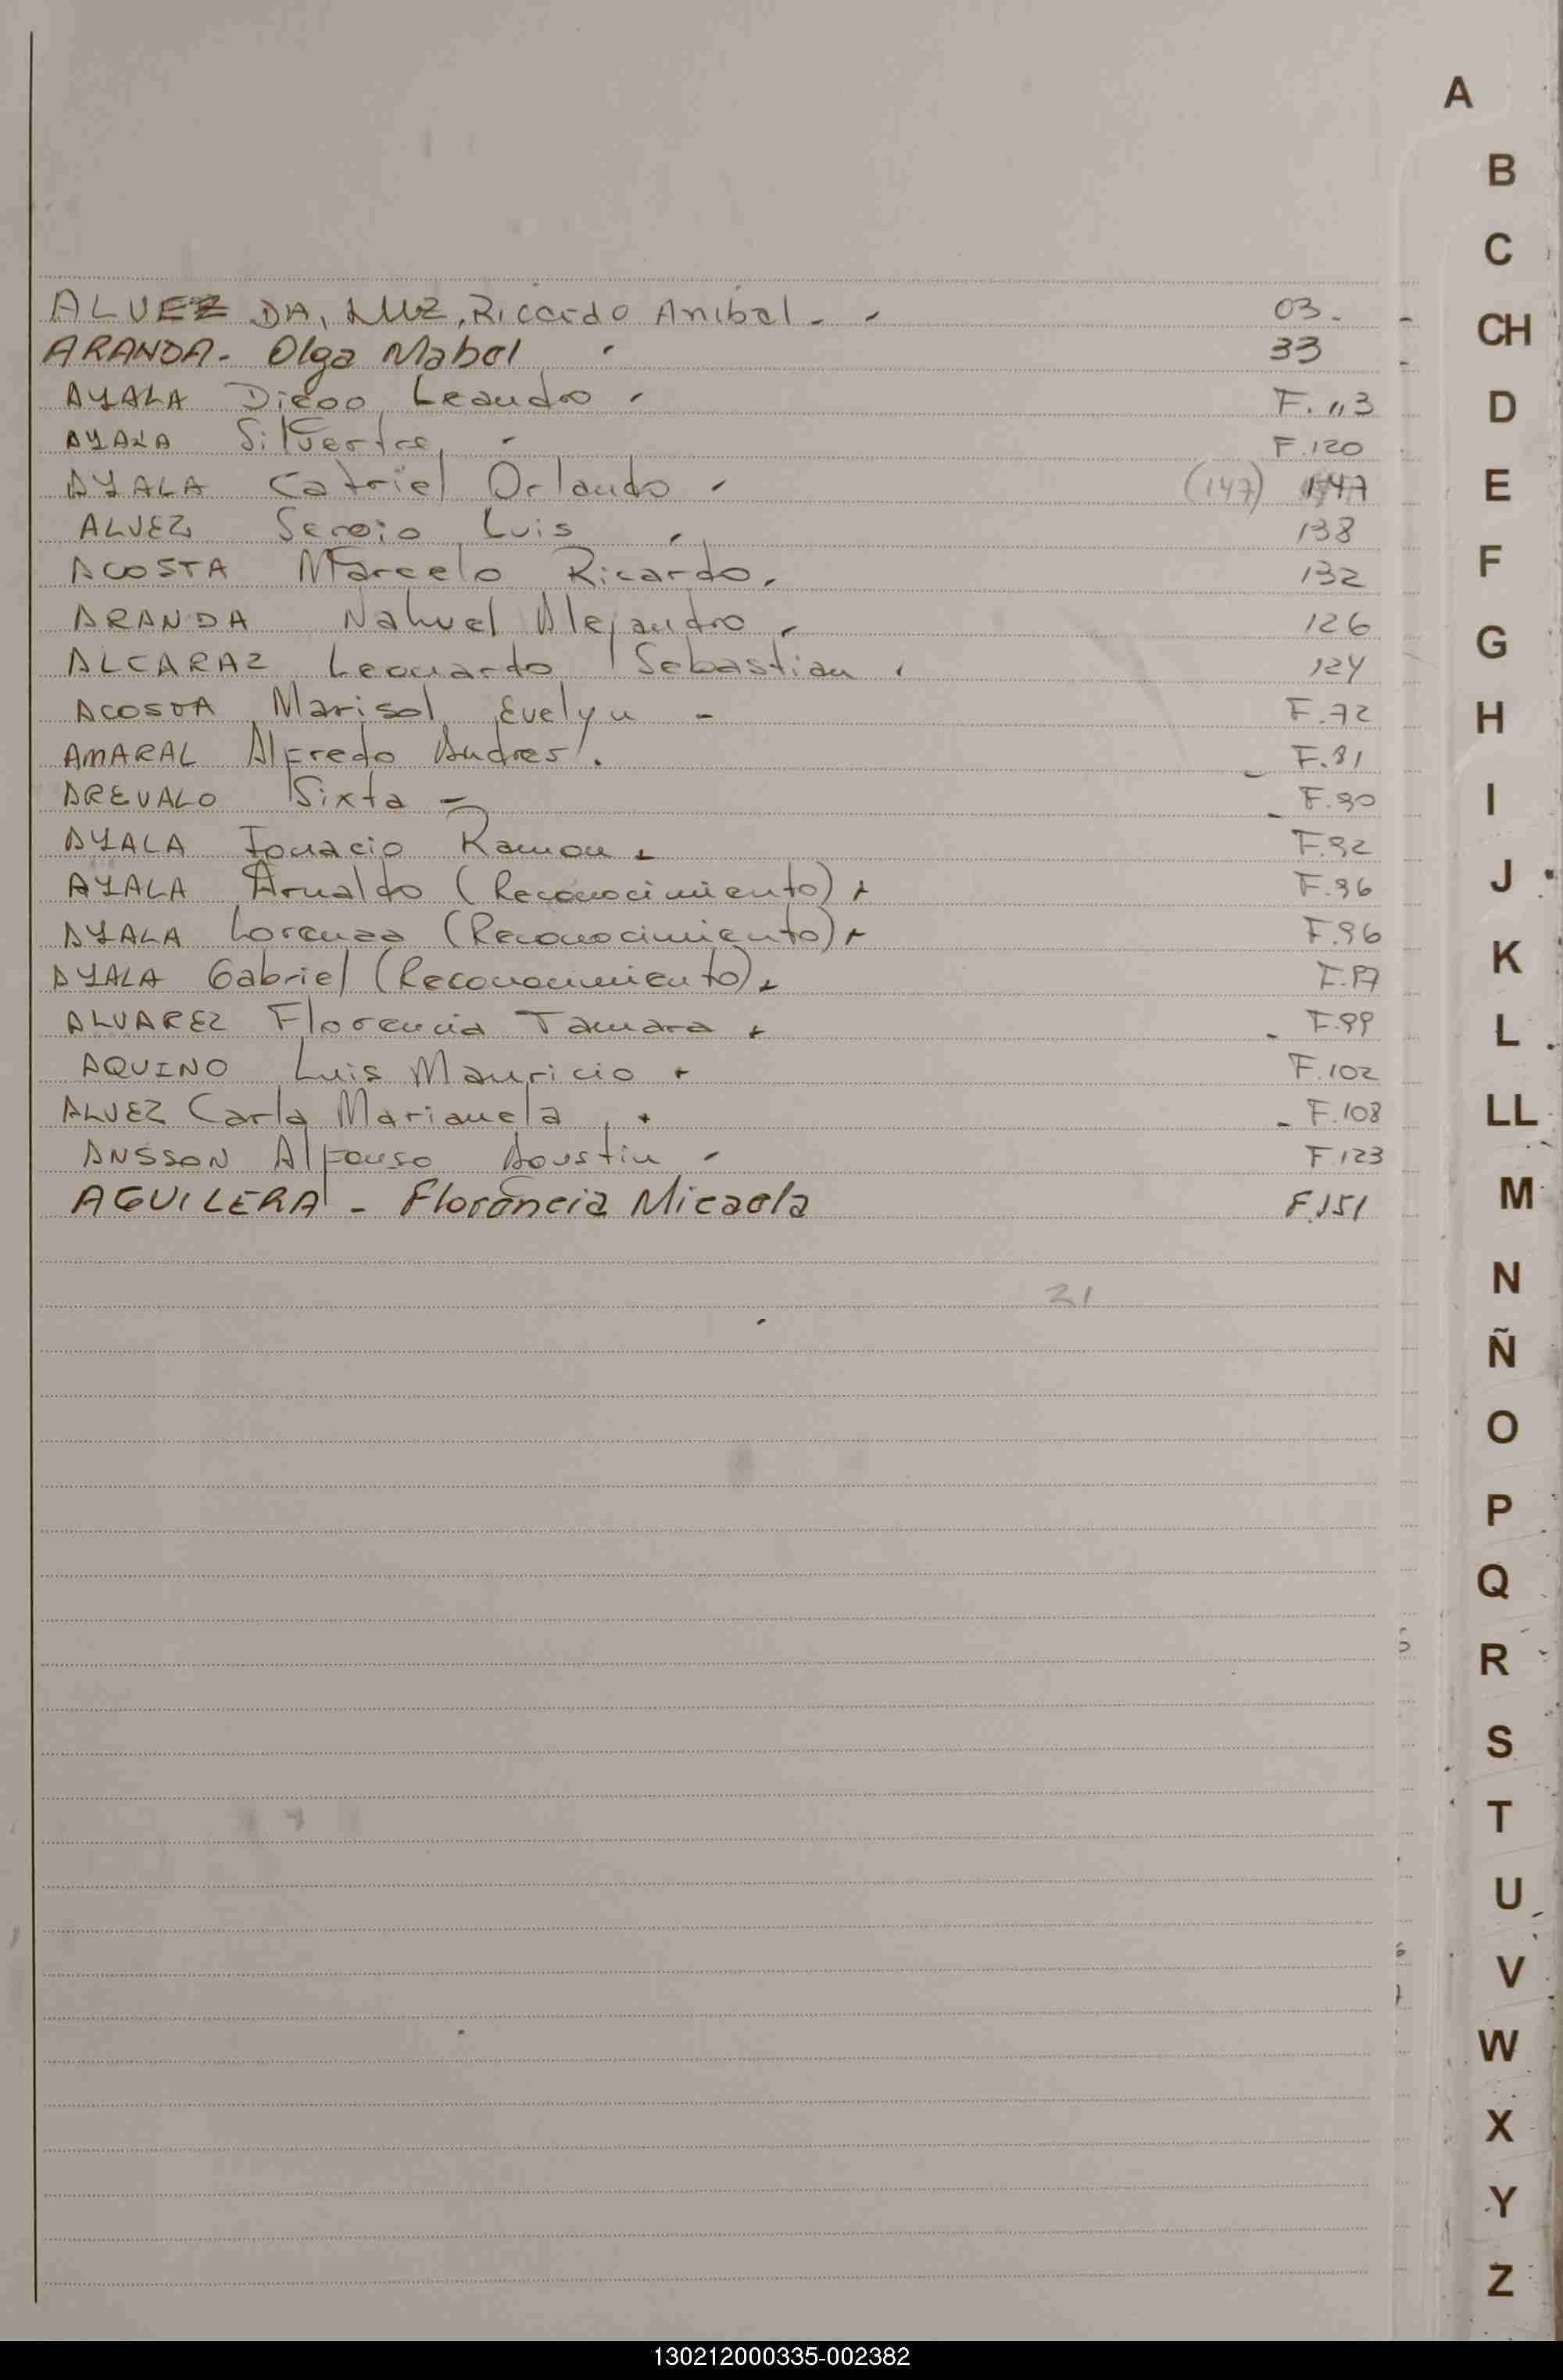 ALVEZ DA, LUZ, Ricardo Anibal. - 03. -
ARANDA. Olga Mabel 33
AYALA Diego Leandro F. 113
AYALA Silvestre F.120
AYALA Catriel Orlando (147) 147
ALVEZ Sergio Luis 138
ACOSTA Marcelo Ricardo. 132
ARANDA Nahuel Alejandro 126
ALCARAZ Leonardo Sebastian 124
ACOSTA Marisol Evelyn - F.72
AMARAL Alfredo Andres. F.81
AREVALO Sixta - F.90
AYALA Ignacio Ramon F.92
AYALA Arnaldo (Reconocimiento) F.96
AYALA Lorenzo (Reconocimiento) F.96
AYALA Gabriel (Reconocimiento) F.97
ALVAREZ Florencia Tamara F.99
AQUINO Luis Mauricio F.102
ALVEZ Carla Marianela F.108
ANSSON Alfonso Agustin - F.123
AGUILERA - Florencia Micaela F.151
21
A
B
C
CH
D
E
F
G
H
I
J
K
L
LL
M
N
Ñ
O
P
Q
R
S
T
U
V
W
X
Y
Z
130212000335-002382